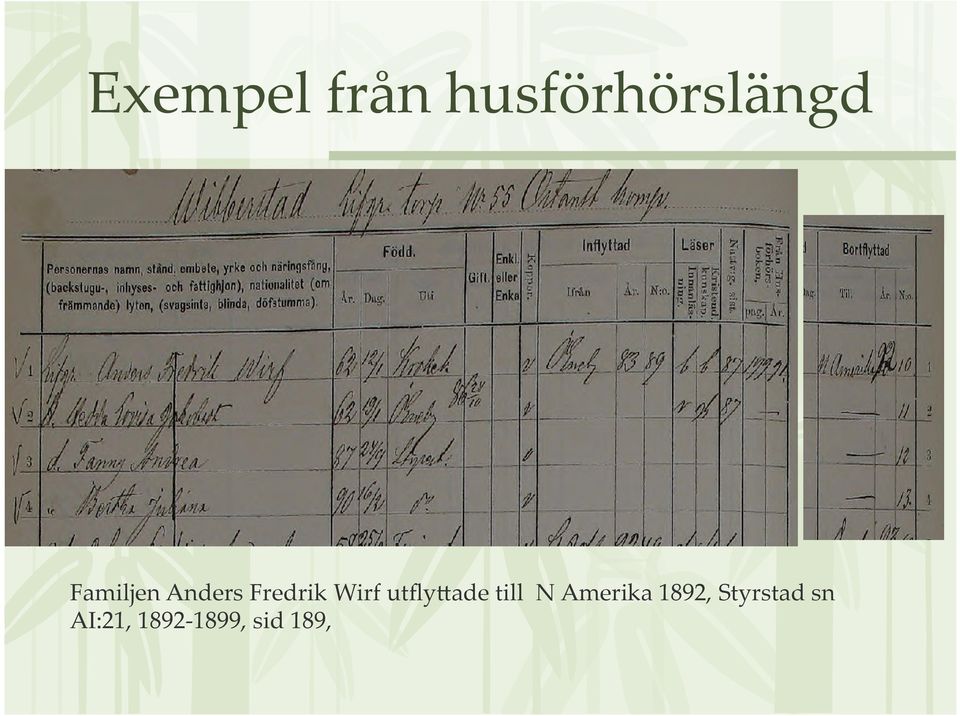 Exempel från husförhörslängd
Wibberstad Lifgr. torp Nr 55 komp.
Personernas namn, stånd, embete, yrke och näringsfång,
(backstugu-, inhyses- och fattighjon), nationalitet (om
främmande) lyten, (svagsinta, blinda, döfstumma).
Född.
År. Dag. Uti
Gift.
Enkl.
eller
Enka
Koppor.
Inflyttad
Ifrån År. N:o.
Läser
Innanläs-
ning.
Kristend.
kunskap.
Nattvg. sist.
Från Hus-
förhörs-
boken,
pag. År.
Bortflyttad
Till År. N:o.
1 Lifgr. Anders Fredrik Wirf 62 12/1 v 83 89 b b 87 N Amerika 92 10 1
2 h. Hedda Lovisa 62 19/1 v 87 — — 11 2
3 d. Fanny Andrea 87 v — 12 3
4 " Bertha Juliana 90 16/2 v — 13 4
Familjen Anders Fredrik Wirf utflyttade till N Amerika 1892, Styrstad sn
AI:21, 1892-1899, sid 189,